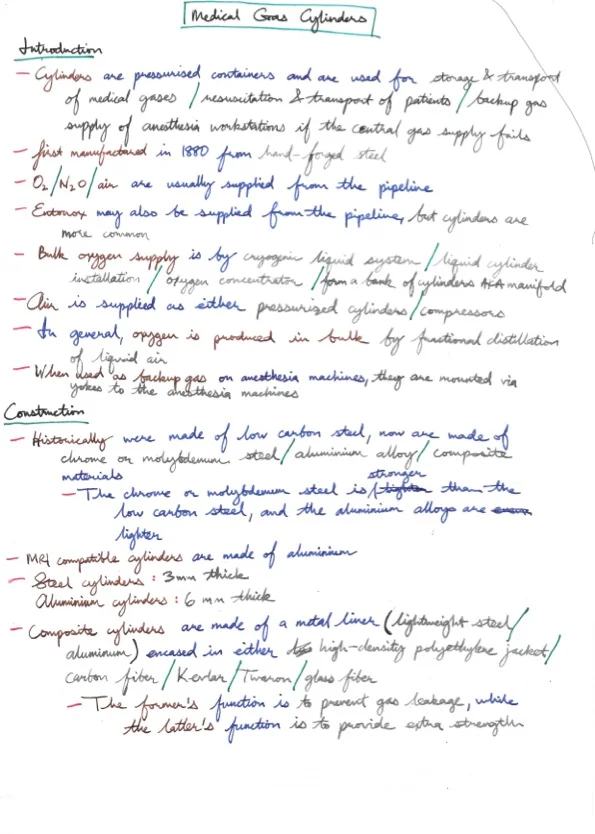 Medical Gas Cylinders
Introduction
- Cylinders are pressurised containers and are used for storage & transport
of medical gases / resuscitation & transport of patients / backup gas
supply of anesthesia workstations if the central gas supply fails
- first manufactured in 1880 from hand-forged steel
- O2/N2O/air are usually supplied from the pipeline
- Entonox may also be supplied from the pipeline, but cylinders are
more common
- Bulk oxygen supply is by cryogenic liquid system / liquid cylinder
installation / oxygen concentrator / form a bank of cylinders AKA manifold
- Air is supplied as either pressurized cylinders / compressors
- In general, oxygen is produced in bulk by fractional distillation
of liquid air
- When used as backup gas on anesthesia machines, they are mounted via
yokes to the anesthesia machines
Construction
- Historically were made of low carbon steel, now are made of
chrome or molybdenum steel / aluminium alloy / composite
materials
- The chrome or molybdenum steel is stronger than the
low carbon steel, and the aluminium alloys are
lighter
- MRI compatible cylinders are made of aluminium
- Steel cylinders : 3mm thick
Aluminium cylinders : 6 mm thick
- Composite cylinders are made of a metal liner (lightweight steel/
aluminum) encased in either high-density polyethylene jacket/
carbon fiber / Kevlar / Twaron / glass fiber
- The former's function is to prevent gas leakage, while
the latter's function is to provide extra strength